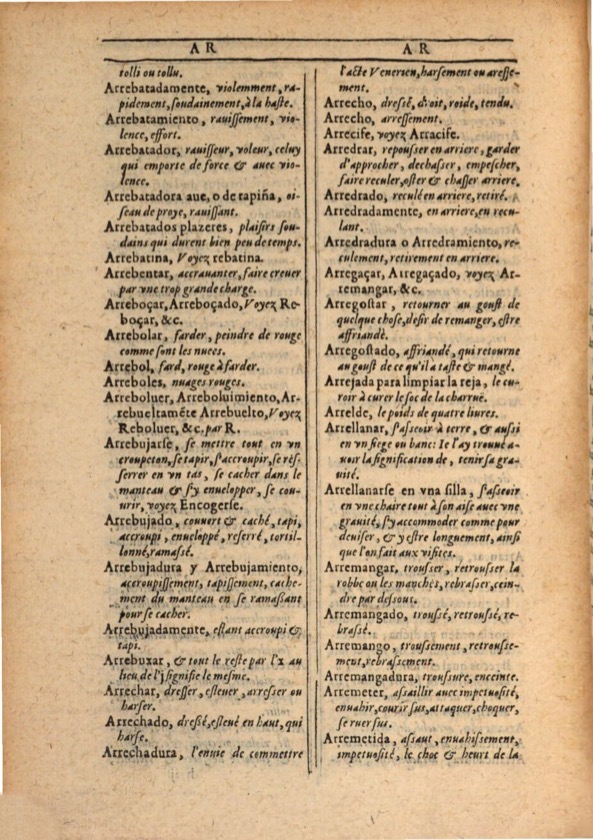 AR
tolli ou tollu.
Arrebatadamente, violemment, ra-
pidement, soudainement, à la haste.
Arrebatamiento, rauissement, vio-
lence, effort.
Arrebatador, rauisseur, voleur, celuy
qui emporte de force & auec vio-
lence.
Arrebatadora aue, o de rapiña, oi-
seau de proye, rauissant.
Arrebatados plazeres, plaisirs sou-
dains qui durent bien peu de temps.
Arrebatina, Voyez rebatina.
Arrebentar, accrauanter, faire creuer
par vne trop grande charge.
Arreboçar, Arreboçado, Voyez Re-
boçar, &c.
Arrebolar, farder, peindre de rouge
comme sont les nuees.
Arrebol, fard, rouge à farder.
Arreboles, nuages rouges.
Arreboluer, Arreboluimiento, Ar-
rebueltamẽte Arrebuelto, Voyez
Reboluer, &c. par R.
Arrebujarse, se mettre tout en vn
croupeton, se tapir, s'accroupir, se res-
serrer en vn tas, se cacher dans le
manteau & s'y enuelopper, se cou-
urir, voyez Encogerse.
Arrebujado, couuert & caché, tapi,
accroupi, enueloppé, reserré, tortil-
lonné, ramassé.
Arrebujadura y Arrebujamiento,
accroupissement, tapissement, cache-
ment du manteau en se ramassant
pour se cacher.
Arrebujadamente, estant accroupi &
tapi.
Arrebuxar, & tout le reste par l'x au
lieu de l'j signifie le mesme.
Arrechar, dresser, esleuer, arresser ou
harser.
Arrechado, dressé, esleué en haut, qui
harse.
Arrechadura, l'enuie de commettre
AR
l'acte Venerien, harsement ou aresse-
ment.
Arrecho, dressé, droit, roide, tendu.
Arrecho, arressement.
Arrecife, voyez Arracife.
Arredrar, repousser en arriere, garder
d'approcher, dechasser, empescher,
faire reculer, oster & chasser arriere.
Arredrado, reculé en arriere, retiré.
Arredradamente, en arriere, en recu-
lant.
Arredradura o Arredramiento, re-
culement, retirement en arriere.
Arregaçar, Arregaçado, voyez Ar-
remangar, &c.
Arregostar, retourner au goust de
quelque chose, desir de remanger, estre
affriandé.
Arregostado, affriandé, qui retourne
au goust de ce qu'il a tasté & mangé.
Arrejada para limpiar la reja, le cu-
roir à curer le soc de la charruë.
Arrelde, le poids de quatre liures.
Arrellanar, s'asseoir à terre, & aussi
en vn siege ou banc: Ie l'ay trouué a-
uoir la signification de, tenir sa gra-
uité.
Arrellanarse en vna silla, s'asseoir
en vne chaire tout à son aise auec vne
grauité, s'y accommoder comme pour
deuiser, & y estre longuement, ainsi
que l'on fait aux visites.
Arremangar, trousser, retrousser la
robbe ou les manches, rebrasser, cein-
dre par dessous.
Arremangado, troussé, retroussé, re-
brassé.
Arremango, troussement, retrousse-
ment, rebrassement.
Arremangadura, troussure, enceinte.
Arremeter, assaillir auec impetuosité,
enuahir, courir sus, attaquer, choquer,
se ruer sus.
Arremetida, assaut, enuahissement,
impetuosité, le choc & heurt de la